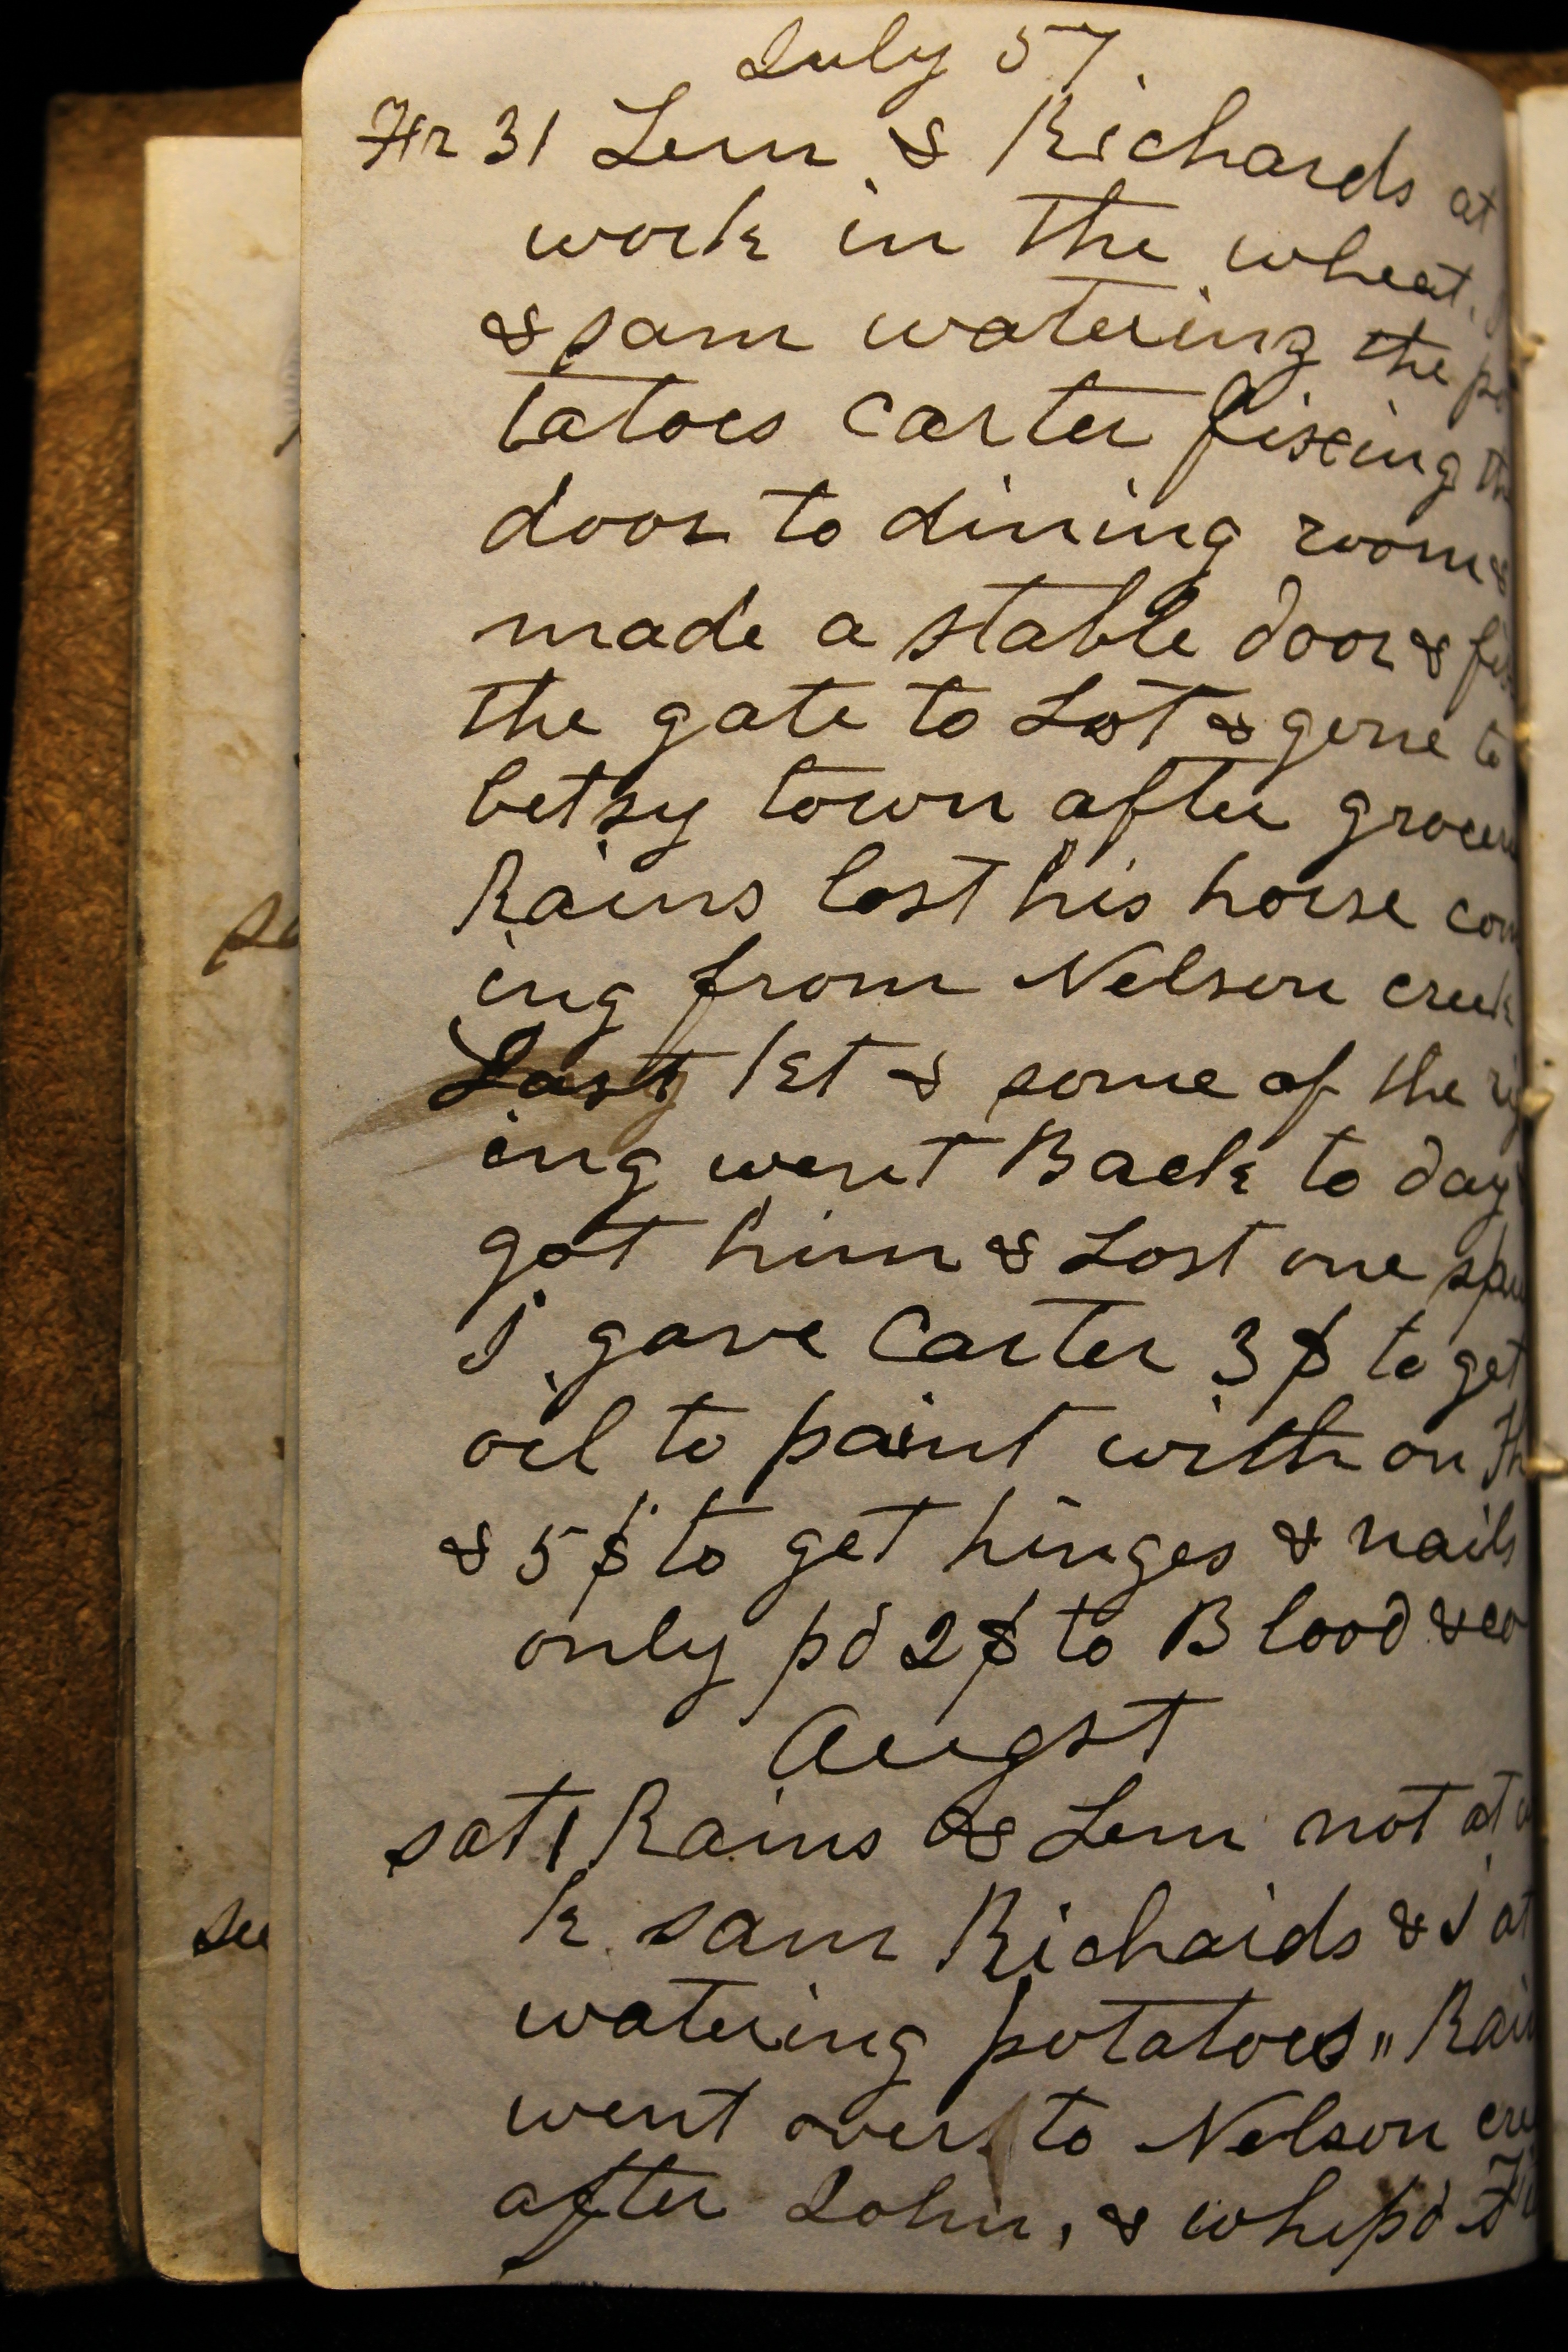 July 57.
Fr 31 Lem & Richards at
work in the wheat.
& sam watering the po
tatoes Carter fixing th
door to dining room &
made a stable door & fix
the gate to Lot & gone to
betsy town after grocer
Rains lost his horse com
ing from Nelson creek
Last &
some of the
ing went Back to day
got him & Lost one spu
I gave Carter 3$ to get
oil to paint with on Th
& 5$ to get hinges & nails
only pd 2$ to Blood & co
Augst
sat 1 Rains & Lem not at
k sam Richards & I at
watering potatoes " Rain
went over to Nelson cre
after John, & whipd